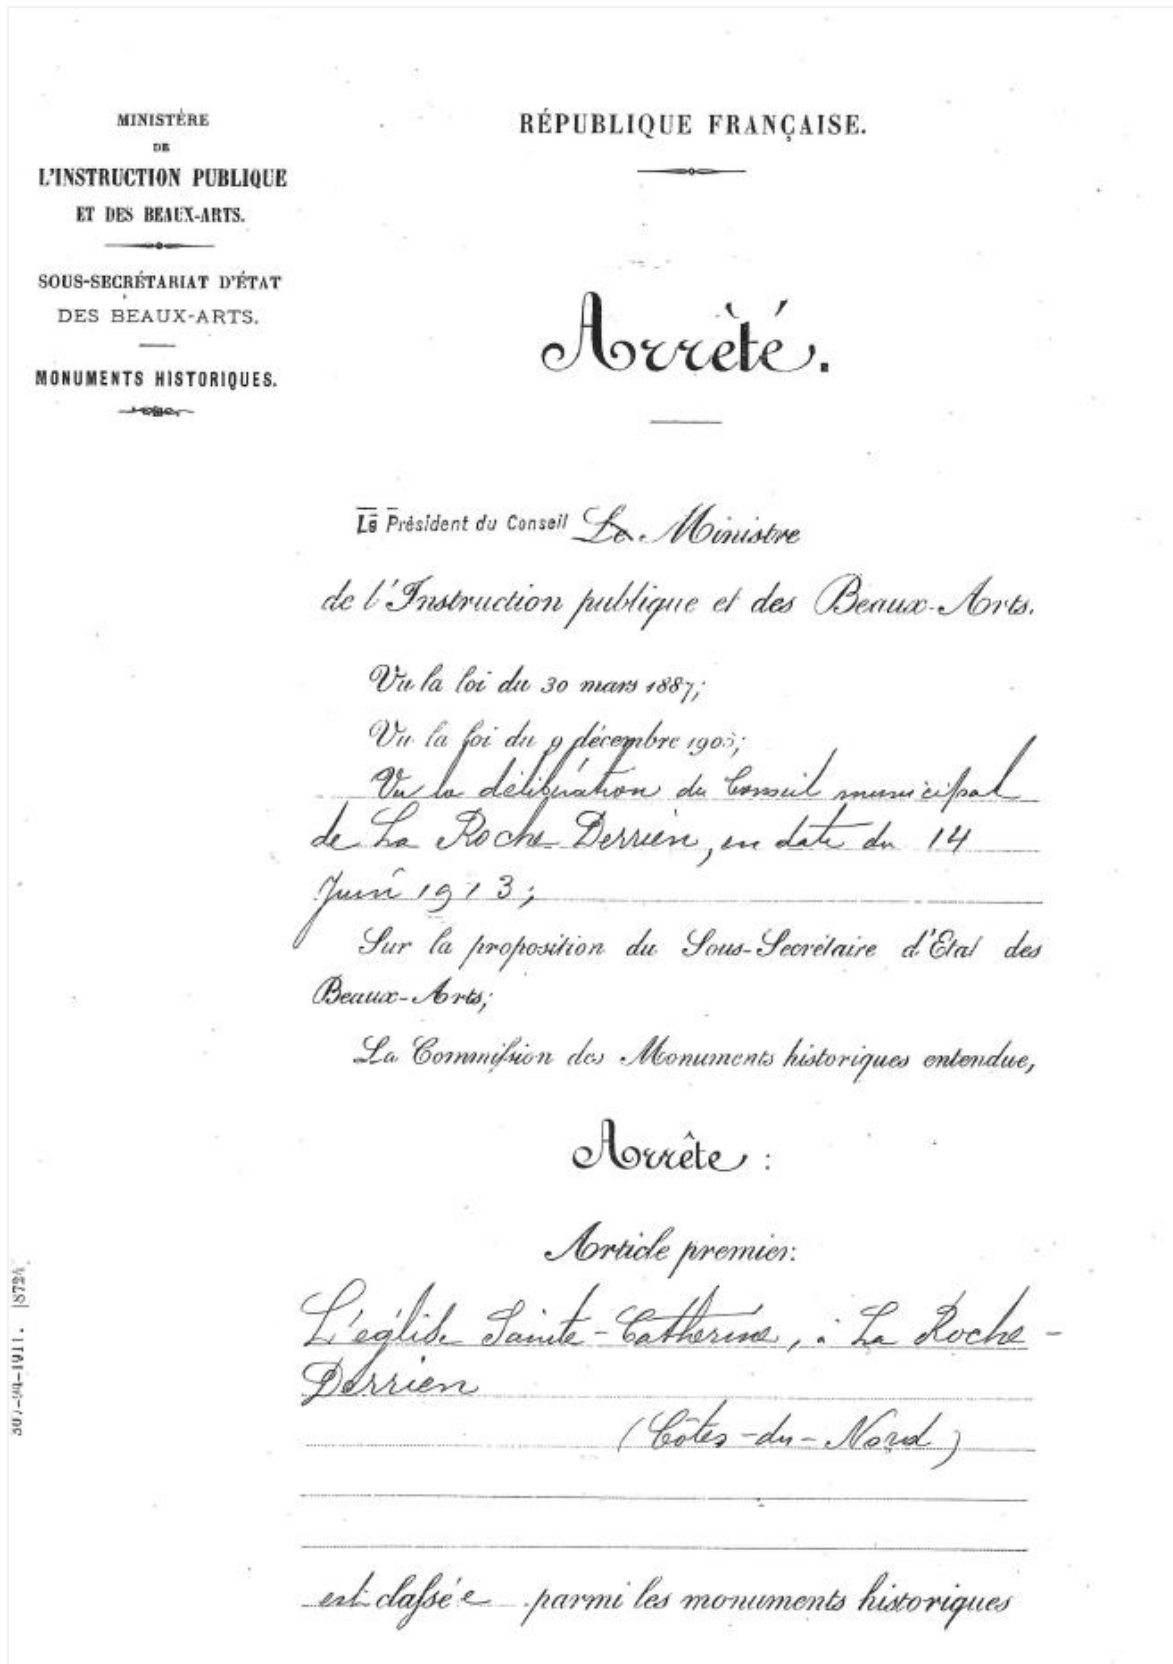 MINISTÈRE
DE
L'INSTRUCTION PUBLIQUE
ET DES BEAUX-ARTS.
SOUS-SECRÉTARIAT D'ÉTAT
DES BEAUX-ARTS.
MONUMENTS HISTORIQUES.
RÉPUBLIQUE FRANÇAISE.
Arrêté.
Le Président du Conseil Le Ministre
de l'Instruction publique et des Beaux-Arts.
Vu la loi du 30 mars 1887;
Vu la loi du 9 décembre 1905;
Vu la délibération du Conseil municipal
de La Roche-Derrien, en date du 14
Juin 1913;
Sur la proposition du Sous-Secrétaire d'Etat des
Beaux-Arts;
La Commission des Monuments historiques entendue,
Arrête :
Article premier:
L'église Sainte-Catherine, à La Roche-
Derrien
(Côtes-du-Nord)
est classée parmi les monuments historiques